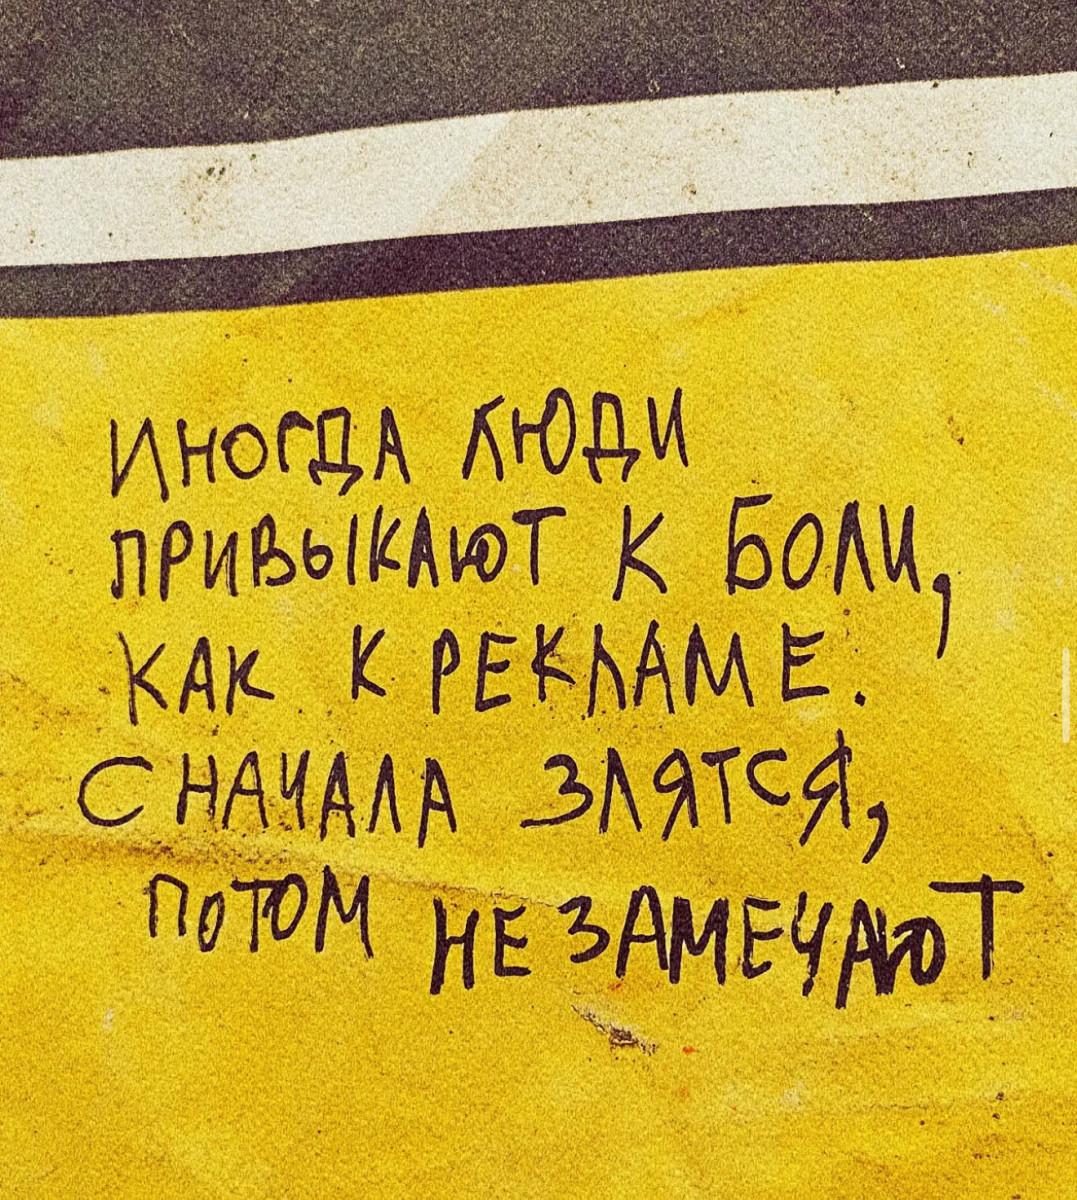 ИНОГДА ЛЮДИ
ПРИВЫКАЮТ К БОЛИ,
КАК К РЕКЛАМЕ.
СНАЧАЛА ЗЛЯТСЯ,
ПОТОМ НЕ ЗАМЕЧАЮТ